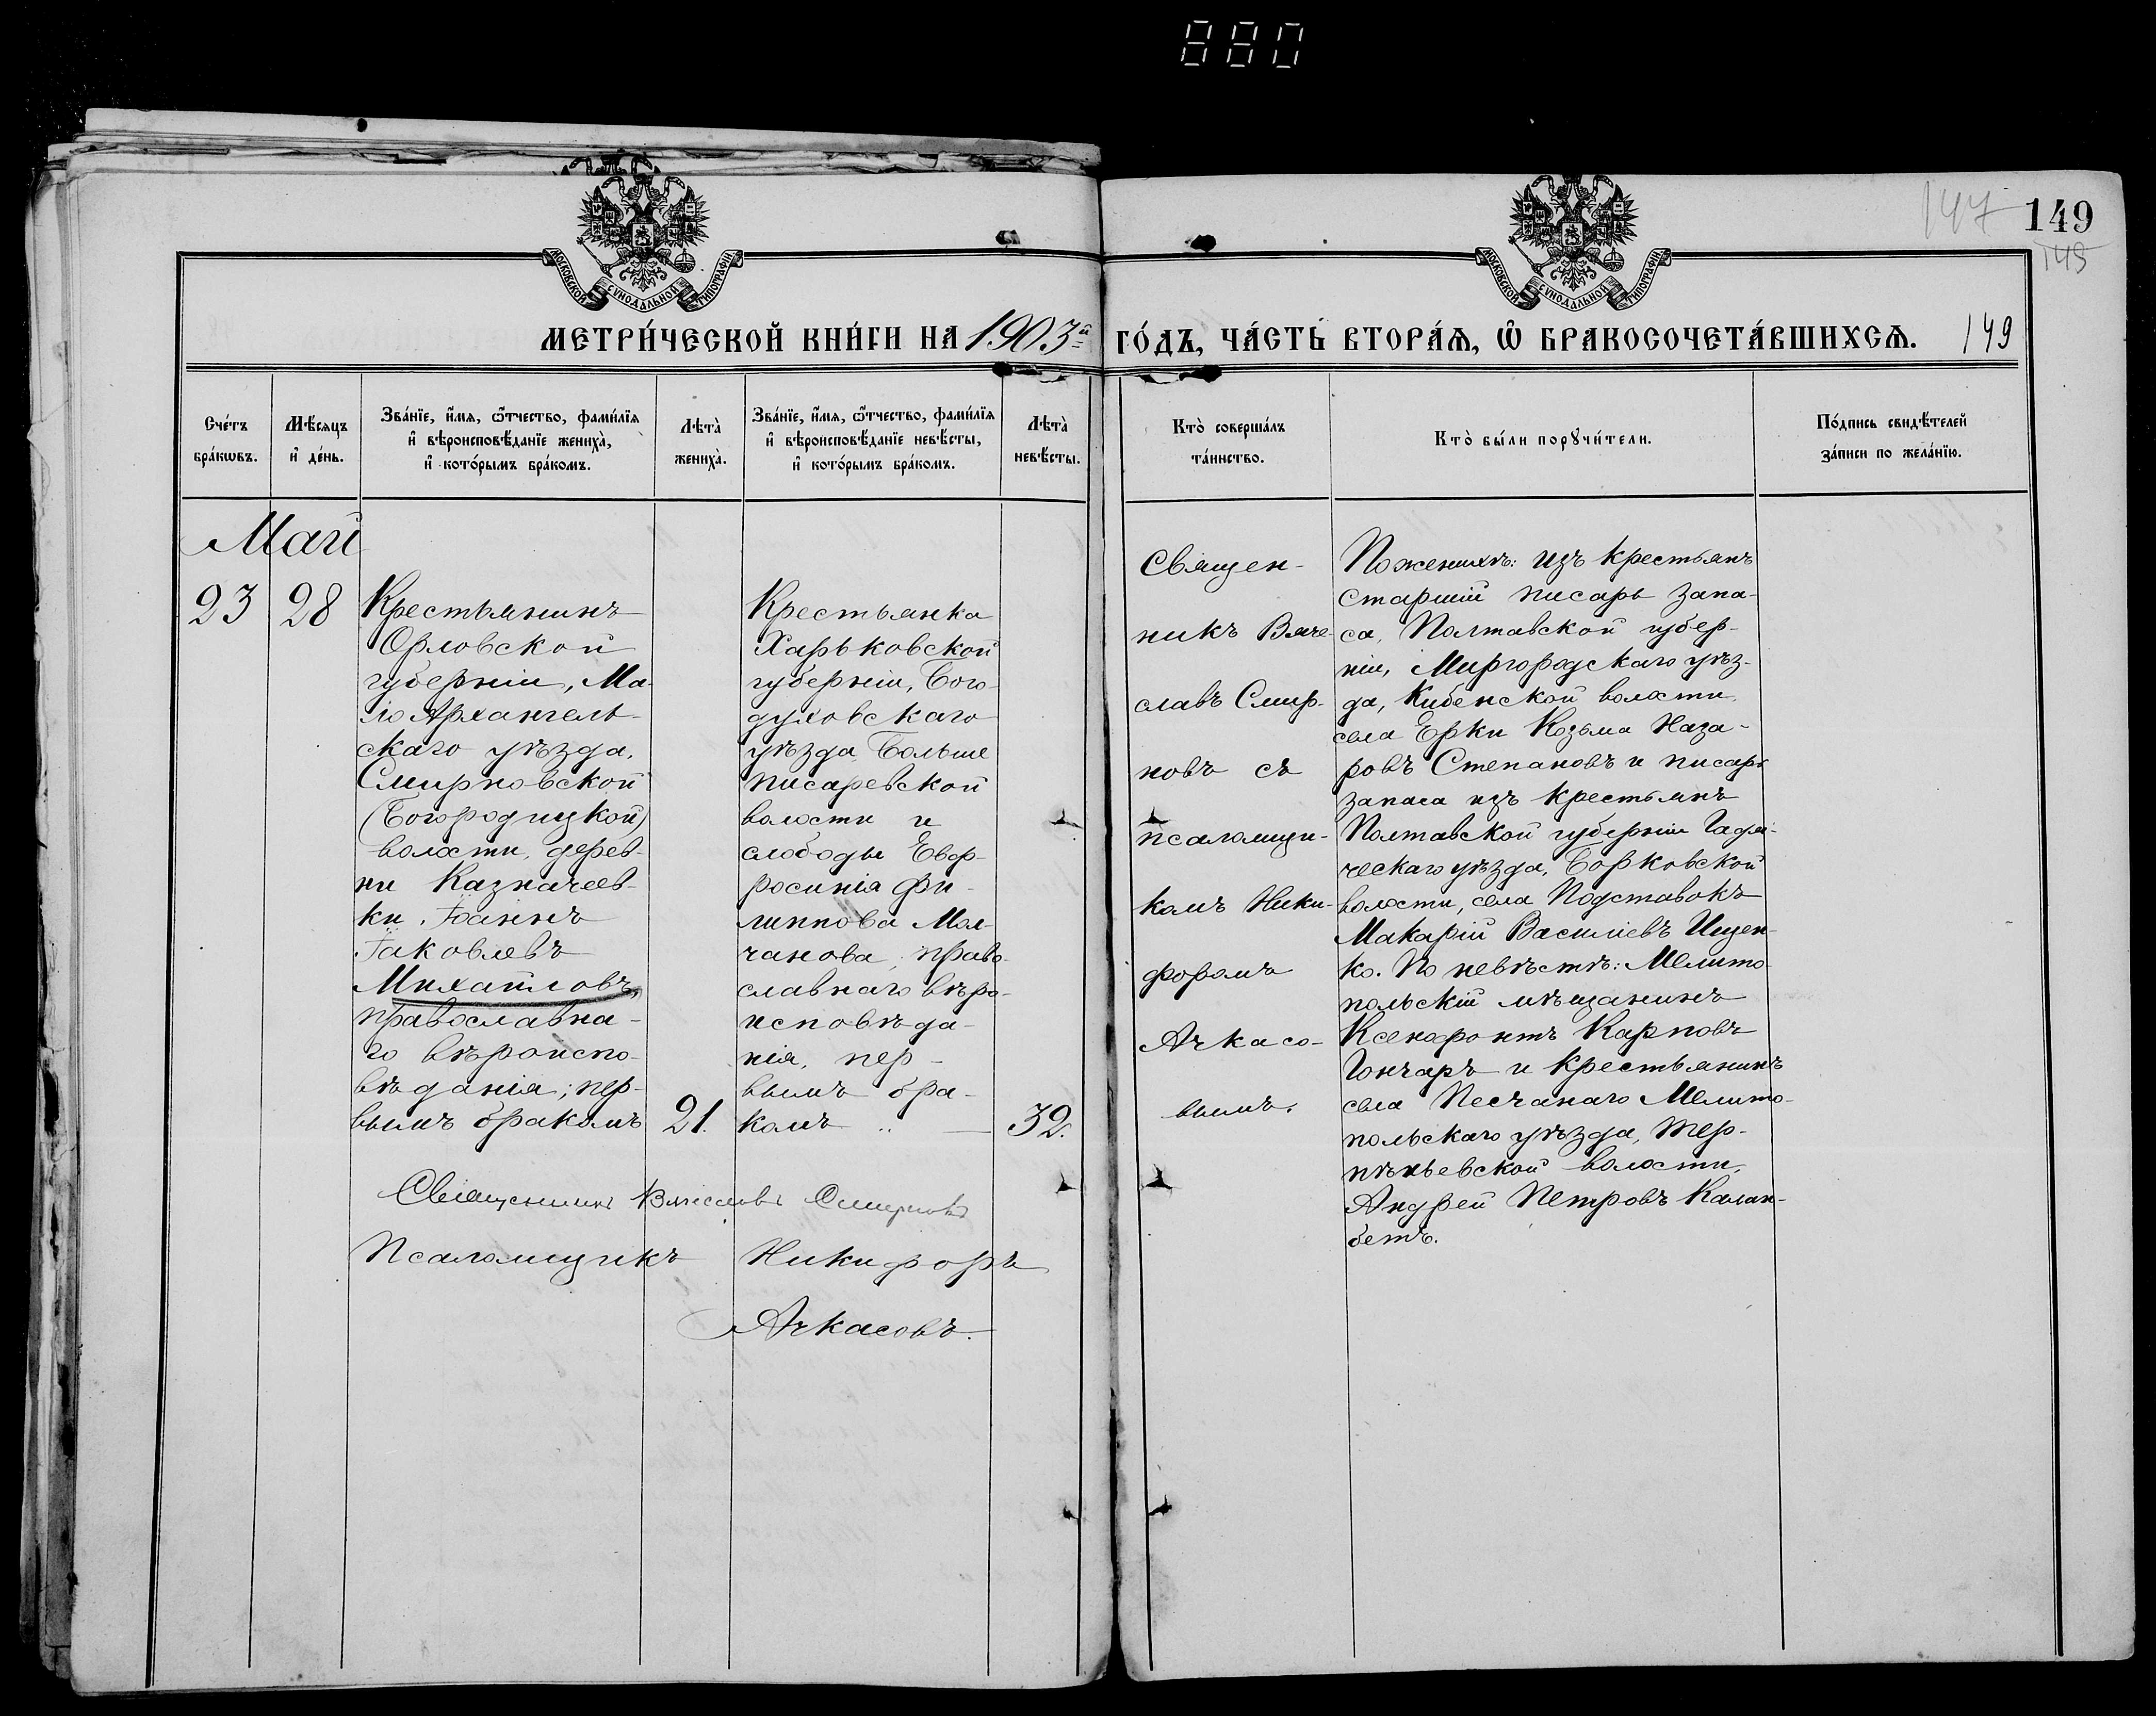 880
147
149
145
МОСКОВСКОЙ СѴНОДАЛЬНОЙ ТИПОГРАФІИ
МОСКОВСКОЙ СѴНОДАЛЬНОЙ ТИПОГРАФІИ
МЕТРИ́ЧЕСКОЙ КНИ́ГИ НА 1903й ГО́ДЪ, ЧА́СТЬ ВТОРА́Ѧ, Ѡ҆ БРАКОСОЧЕТА́ВШИХСѦ. 149
Сче́тъ
бра́кѡвъ.
Мѣ́сяцъ
и҆ де́нь.
Зва́нїе, и҆́мя, ѻ҆́тчество, фами́лїя
и҆ вѣроисповѣ́данїе жениха̀,
и҆ кото́рымъ бра́комъ.
Лѣта̀
жениха̀.
Зва́нїе, и҆́мя, ѻ҆́тчество, фами́лїя
и҆ вѣроисповѣ́данїе невѣ́сты,
и҆ кото́рымъ бра́комъ.
Лѣта̀
невѣ́сты.
Кто̀ соверша́лъ
та́инство.
Кто̀ бы́ли порꙋчи́тели.
По́дпись свидѣ́телей
за́писи по жела́нїю.
Май
23
28
Крестьянинъ
Орловской
губерніи, Ма-
ло Архангель-
скаго уѣзда,
Смирновской
(Богородицкой)
волости, дерев-
ни Казначеев-
ки, Іоаннъ
Іаковлевъ
Михайловъ,
православна-
го вѣроиспо-
вѣданія; пер-
вымъ бракомъ
21.
Крестьянка
Харьковской
губерніи, Бого-
духовскаго
уѣзда Больше
писаревской
волости и
слободы Евф-
росинія Фи-
липпова Мол-
чанова, право-
славнаго вѣро-
исповѣда-
нія, пер-
вымъ бра-
комъ „ —
32.
Священникъ Вячеславъ Смирновъ
Псаломщикъ Никифоръ
Ачкасовъ.
Священ-
никъ Вяче-
славъ Смир-
новъ съ
псаломщи-
комъ Ники-
форомъ
Ачкасо-
вымъ.
По женихѣ: изъ крестьянъ
старшій писарь запа-
са, Полтавской губер-
ніи, Миргородскаго уѣз-
да, Кибенской волости,
села Ерки Козьма Наза-
ровъ Степановъ и писарь
запаса изъ крестьянъ
Полтавской губерніи Гадя-
ческаго уѣзда, Борковской
волости, села Подставокъ
Макарій Василіевъ Ищен-
ко. По невѣстѣ: Мелито-
польскій мѣщанинъ
Ксенофонтъ Карповъ
Гончаръ и крестьянинъ
села Песчанаго Мелито-
польскаго уѣзда, Тер-
пѣньевской волости,
Андрей Петровъ Калан-
бетъ.